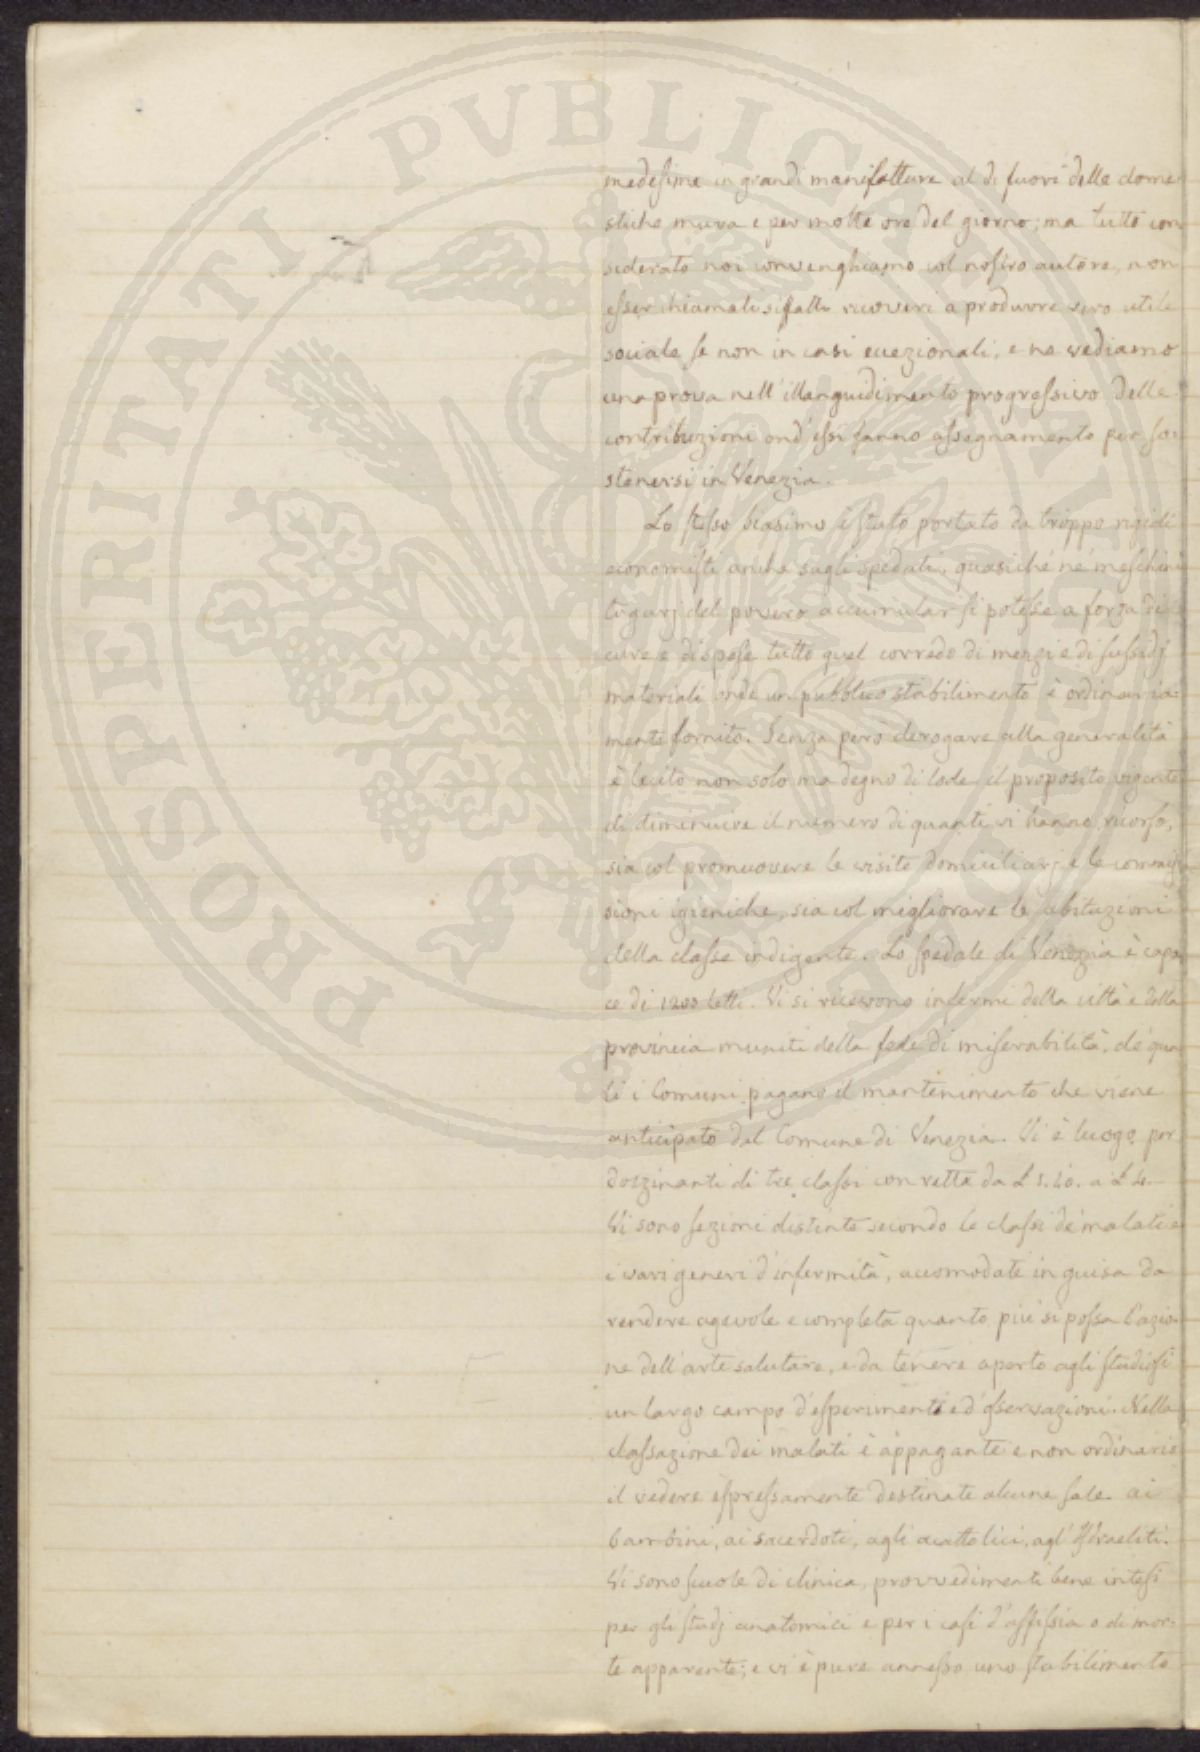 PROSPERITATI PVBLICAE AVGENDAE
medesime in grandi manifatture al di fuori delle dome-
stiche mura e per molte ore del giorno; ma tutto con-
siderato noi convenghiamo col nostro autore, non
esser chiamati siffatti ricoveri a produrre vero utile
sociale se non in casi eccezionali, e ne vediamo
una prova nell'illanguidimento progressivo delle
contribuzioni ond'essi fanno assegnamento per so-
stenersi in Venezia.
Lo stesso biasimo è stato portato da troppo rigidi
economisti anche sugli spedali, quasichè ne' meschini
tugurj del povero accumular si potesse a forza di
cure e di spese tutto quel corredo di mezzi e di sussidj
materiali onde un pubblico stabilimento è ordinaria-
mente fornito. Senza però derogare alla generalità
è lecito non solo ma degno di lode il proposito vigente
di diminuire il numero di quanti vi hanno ricorso,
sia col promuovere le visite domiciliarj e le commis-
sioni igieniche, sia col migliorare le abitazioni
della classe indigente. Lo spedale di Venezia è capa-
ce di 1200 letti. Vi si ricevono infermi della città e della
provincia muniti della fede di miserabilità, de' qua-
li i Comuni pagano il mantenimento che viene
anticipato dal Comune di Venezia. Vi è luogo per
dozzinanti di tre classi con retta da £ a £
Vi sono sezioni distinte secondo le classi de' malati e
i vari generi d'infermità, accomodate in guisa da
rendere agevole e completa quanto più si possa l'azio-
ne dell'arte salutare, e da tenere aperto agli studiosi
un largo campo d'esperimenti e d'osservazioni. Nella
classazione dei malati è appagante e non ordinario
il vedere espressamente destinate alcune sale ai
bambini, ai sacerdoti, agli acattolici, agl'Israeliti.
Vi sono scuole di clinica, provvedimenti bene intesi
per gli studj anatomici e per i casi d'assissia o di mor-
te apparente; e vi è pure annesso uno stabilimento